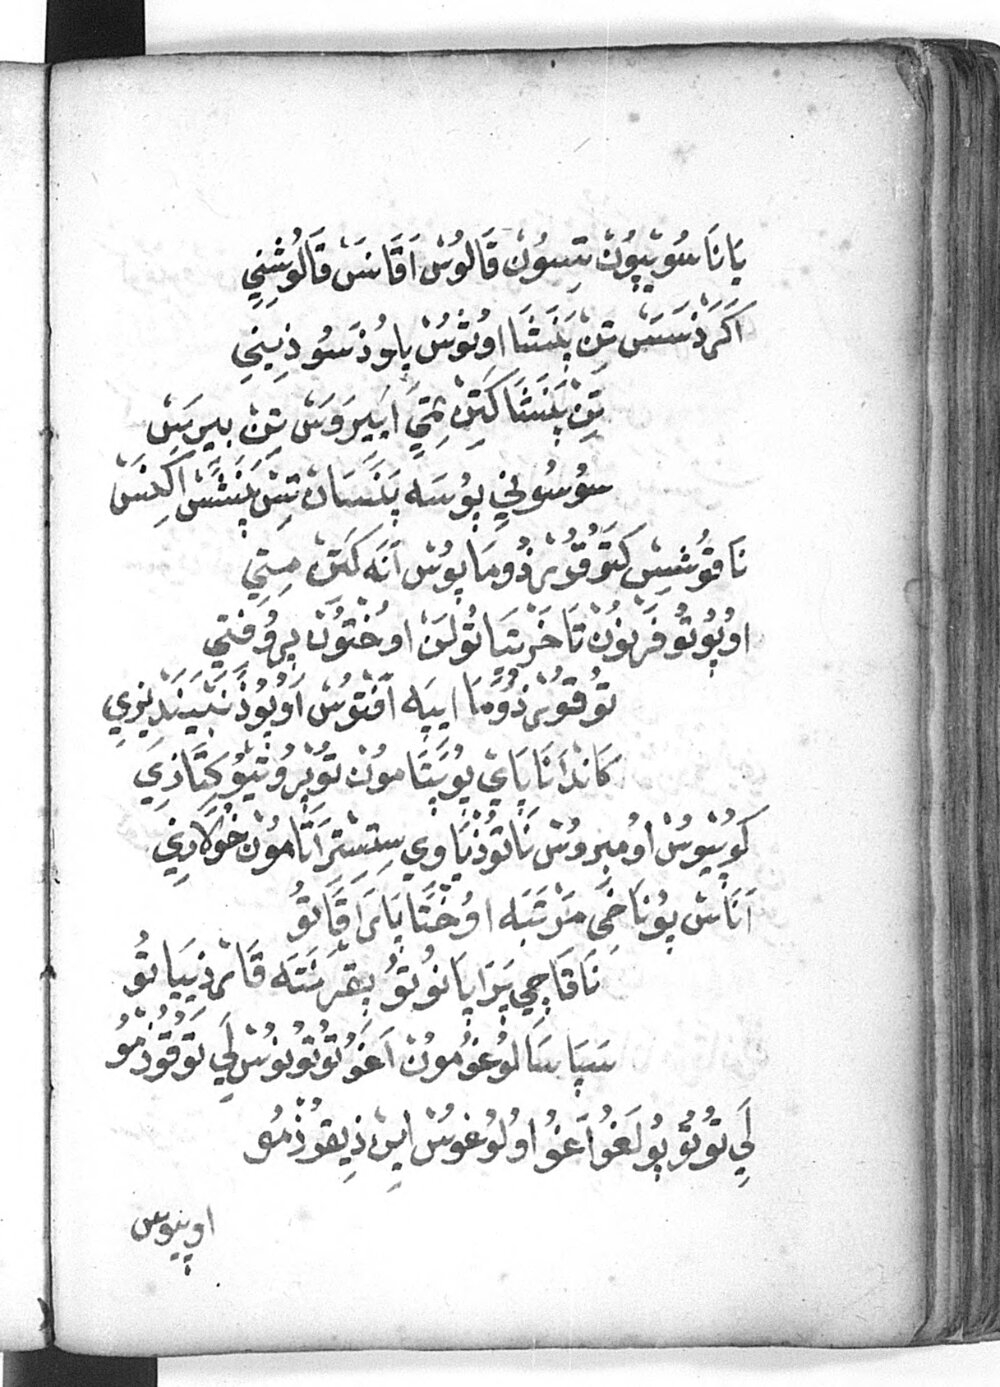 يَانَا سُويٖپُونْ تِسُونْ قَالُوسْ اَقَانَسْ قَالُوشِنِي
اَكَرَذْسَسَسْ تِنْ پَنَشَا اوُتُوسْ پَاوُذَسُو ذِينِي
تِنْ پَنَشَا كَتِنْ مِتِي اَپَيرَوَسْ تِنْ بيرَسَسْ
سُوسُولِي پوُسَه پَنَسَانْ تِسْ پَنَشَسْ اَكِنَسْ
نَا قوُشِسْ كَتَوُقوُرْ ذوُمَاپوُسْ اَنَه كَتِنْ مِتِي
اوُپوُتوُ فَرَنوُنْ تَاخَرْتِيَا تُولَنْ اوُخْتوُنْ پرُوفِتِي
توُقوُرْذوُمَا ايپَه اَفْتوُسْ اَوُپوُذَنْبَيَنَدِيزِي
كَانْذَانَا پَايْ پوُپَتَامونْ توُپْروُتيوُ كِتَازِي
كوُپيوُسْ اوُمپروُسْ نَاتوُذِيَاوِي سِتِسْتِرَاتَامونْ خوُلَازِي
اَنَانْ پوُنَاخِي مَرْتَبَه اوُخْتَا پَارَاقَاتوُ
نَاقَاچِي پَرَاپَانوُتوُ پِقْرَنَتَه قَارْذِيَيَاتوُ
سَپَاسَا لوُغوُمونْ اَغوُتوُتوُنوُسْ لَي تَوقوُذْمُو
لَي توُتوُ پوُلَغوُ اَغوُ اوُلوُغوُسْ اِينْ ذِيقوُذْمُو
اوپيوس